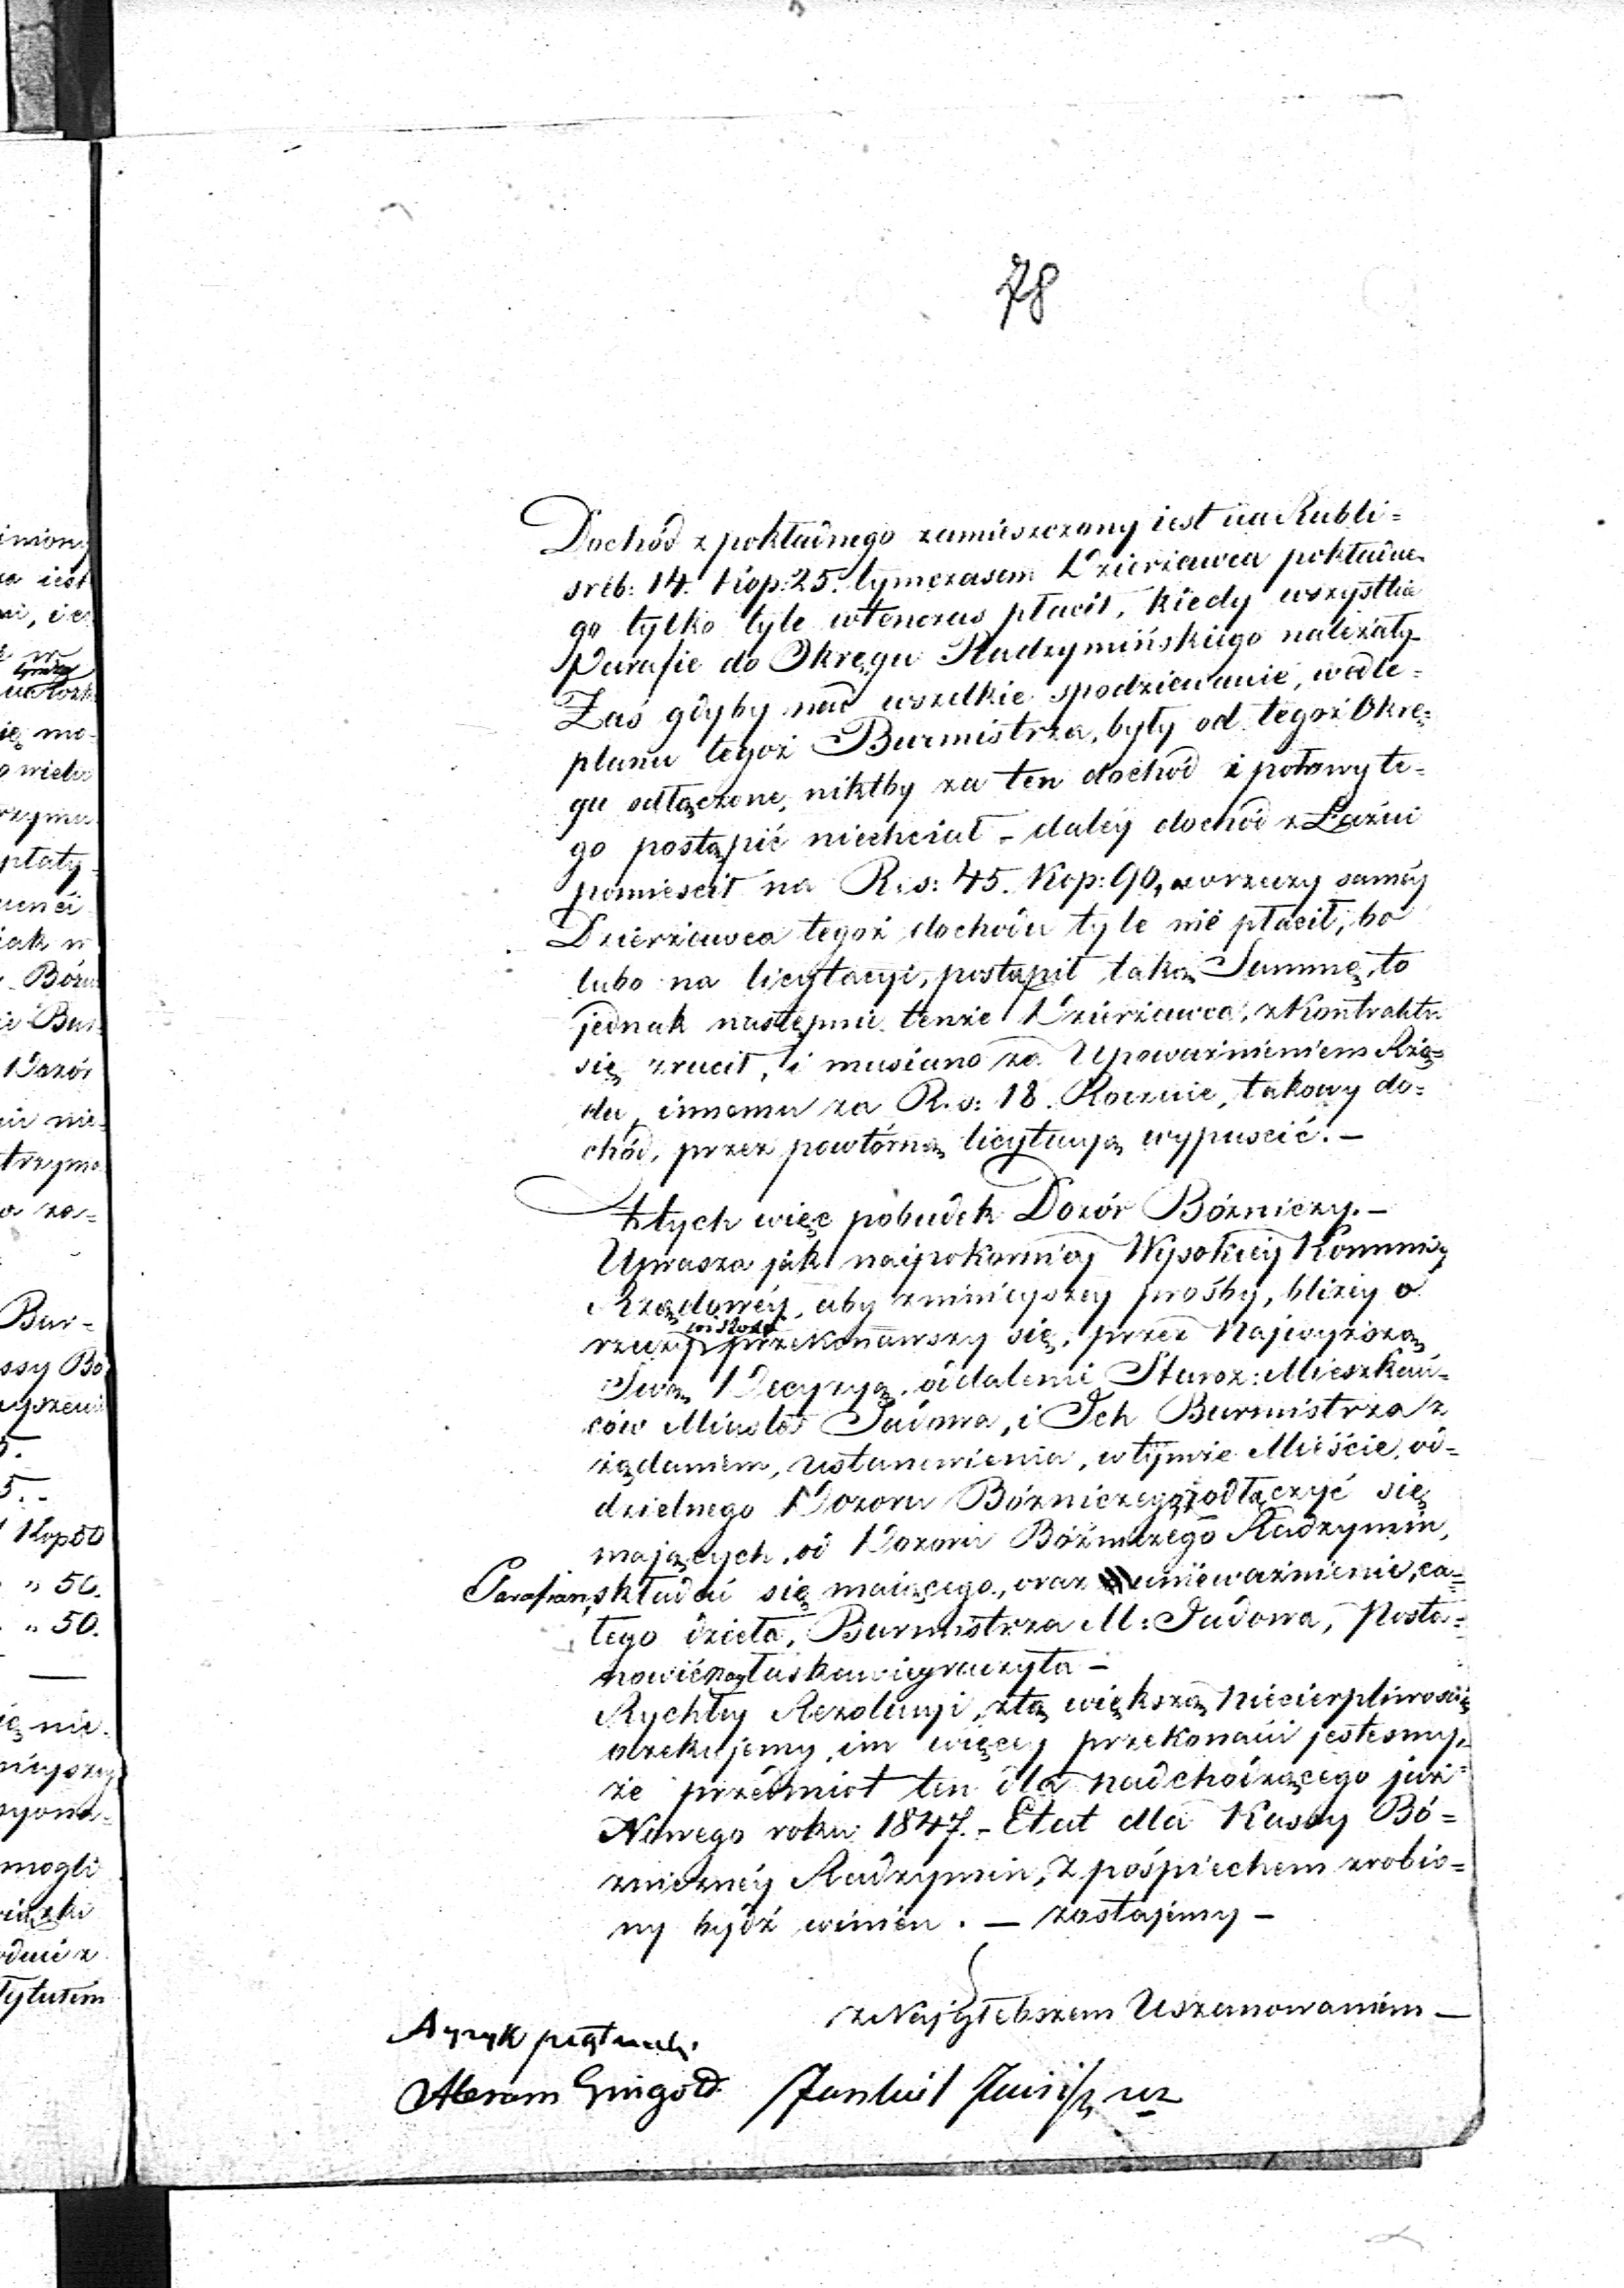 78
Dochód z pokładnego zamieszczony iest na Rubli=
sreb: 14. Kop: 25. tymczasem Dzierżawca pokładne
go tylko tyle wtenczas płacił, kiedy wszystkie
Parafie do Okręgu Radzymińskiego należały
Zaś gdyby nad wszelkie spodziewanie, wedle=
planu tegoż Burmistrza, były od tegoż Okrę=
gu odłączone, niktby za ten dochód i połowy te=
go postąpić niechciał – daléy dochód z Łaźni
pomieścił na R.s: 45. Kop: 90, w rzeczy saméy
Dzierżawca tegoż dochodu tyle nie płacił, bo
lubo na licytacyi, postąpił taką Summę, to
jednak następnie tenże Dzierżawca, z Kontraktu
się zrucił, i musiano za Upoważnieniem Rzą=
du, innemu za R.s: 18. Rocznie, takowy do=
chód, przez powtórną licytacyą wypuścić. –
Z tych więc pobudek Dozór Bóżniczy. –
Uprasza jak naipokorniéj Wysokiéj Kommissyi
Rządowéy, aby z niniéyszéy prośby, bliżéy o
rzeczy przekonawszy się, przez Najwyższą
Swą Decyzyą, oddalenie Staroz: Mieszkań=
ców Miasta Jadowa, i Ich Burmistrza z
żądaniem, ustanowienia, w tymże Mieście, od=
dzielnego Dozoru Bóżniczego, odłączyć się
mających, od Dozoru Bóżniczego Radzymin,
Parafian, składać się maiącego, oraz unieważnienie, ca=
łego dzieła, Burmistrza M: Jadowa, Posta=
nowić naył askawiéy raczyła –
Rychłéy Rezolucyi, z tą większą niecierpliwością
oczekujemy, im więcéj przekonani jesteśmy,
że przedmiot ten dla nadchodzącego już
Nowego roku 1847. – Etat dla Kassy Bó=
żniczney Radzymin, z pośpiechem zrobio=
ny bydź winien. – zostajemy –
z Najgłębszem Uszanowaniem –
Ayzyk
Abram Gingold